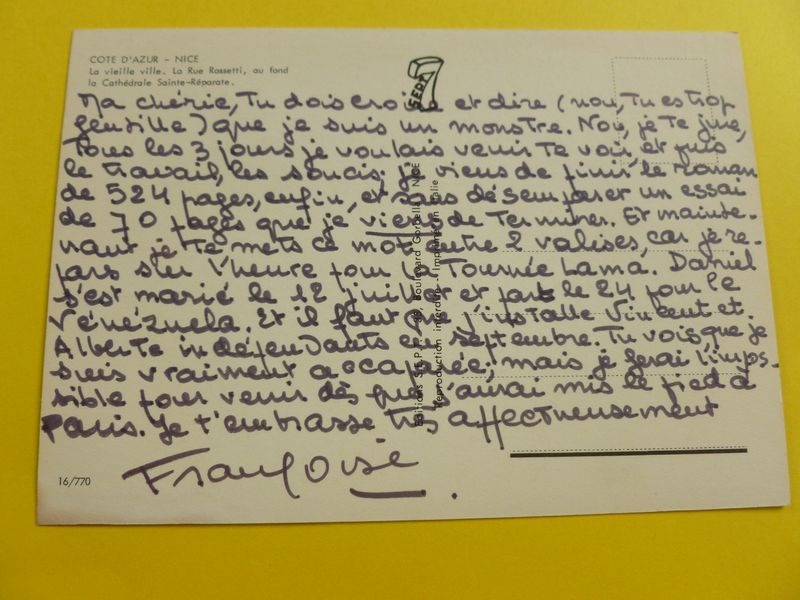 COTE D'AZUR – NICE
La vieille ville. La Rue Rossetti, au fond
la Cathédrale Sainte-Réparate.
SEPT
Ma chérie, Tu dois croire et dire (non, Tu es trop
gentille) que je suis un monstre. Non, je te jure,
tous les 3 jours je voulais venir te voir, et puis
le travail, les soucis. je viens de finir le roman
de 524 pages, enfin, et sans désemparer un essai
de 70 pages que je viens de Terminer. Et mainte-
nant je te mets ce mot entre 2 valises, car je re-
pars sur l'heure pour la Tournée Lama. Daniel
s'est marié le 12 juillet et part le 24 pour le
Vénézuela. Et il faut que j'installe Vincent et
Alberte indépendants en septembre. Tu vois que je
suis vraiment accaparée, mais je ferai l'impos-
sible pour venir dès que j'aurai mis le pied à
Paris. Je t'embrasse très affectueusement
Françoise.
16/770
Reproduction interdite - Imprimé en Italie